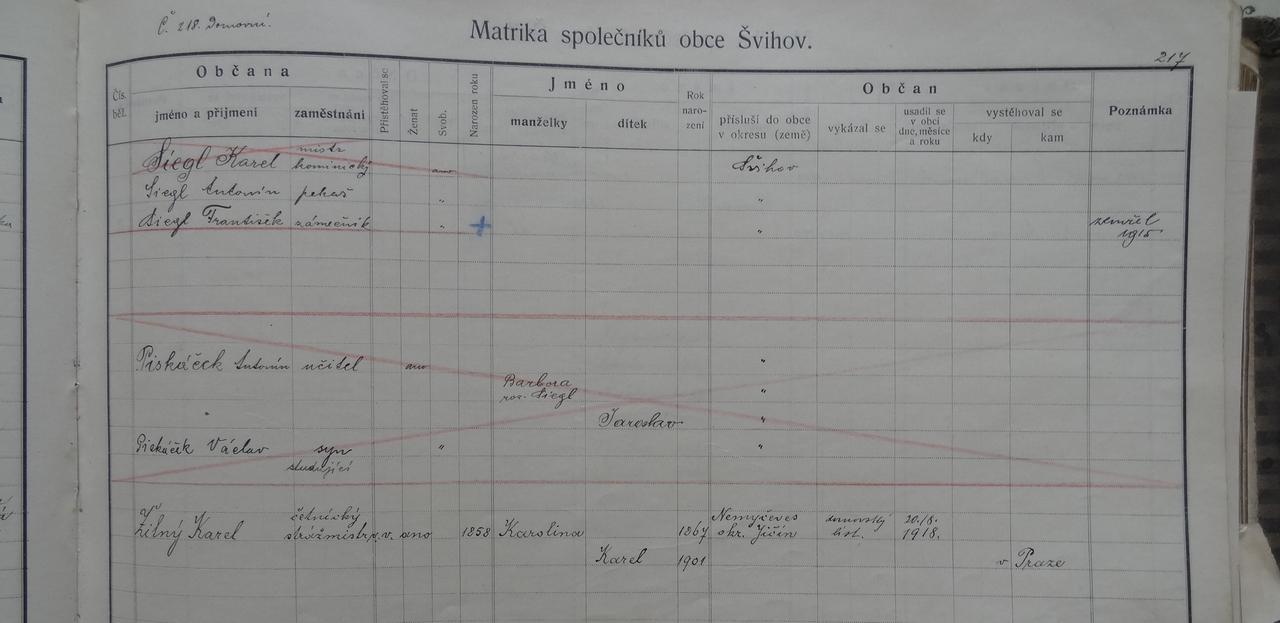 Č 218. Domovní.
Matrika společníků obce Švihov.
217
Čís. běž.
Občana
jméno a příjmení
zaměstnání
Přistěhoval se
Ženat
Svob.
Narozen roku
Jméno
manželky
dítek
Rok naro- zení
Občan
přísluší do obce v okresu (země)
vykázal se
usadil se v obci dne, měsíce a roku
vystěhoval se
kdy
kam
Poznámka
Siegl Karel mistr kominický ano Švihov
Siegl Antonín pekař " "
Siegl František zámečník " + " zemřel 1915
Piskáček Antonín učitel ano "
Barbora roz. Siegl "
Jaroslav "
Piskáček Václav syn studující " "
Žitný Karel četnický strážmistr v. v. ano 1858 Karolina 1867 Nemyčeves okr. Jičín domovský list. 20./8. 1918.
Karel 1901 v Praze